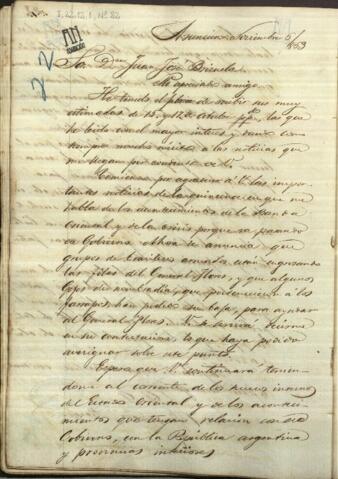 I.22.12.1 Nº 82
Asuncion Noviembre 5/863
Sor. Don Juan José Brizuela
Mi apreciado amigo.
He tenido el placer de recibir sus muy
estimadas de 15, y 12 de octubre ppo, las que
he leido con el mayor interes, y dando como
siempre mucho mérito a las noticias que
me llegan por conducto de V.
Comienzo por agradecer a V. las impor-
tantes noticias de la quincena en que me
habla de los acontecimientos de la Banda
Oriental y de la crisis porque va pasando
su Gobierno. Ahora se anuncia que
grupos de Entrerrianos están engrosando
las filas del General Flores, y que algunos
Gefes de nombradia, que pertenecieron á los
farrapos, han pedido su baja, para ayudar
al General Flores. V. se servirá decirme
en su contestacion lo que haya podido
averiguar sobre este punto.
Espero que V. continuará tenien-
dome al corriente de los sucesos internos
del Estado Oriental y de los aconteci-
mientos que tengan relacion con ese
Gobierno, con la República argentina
y provincias interiores